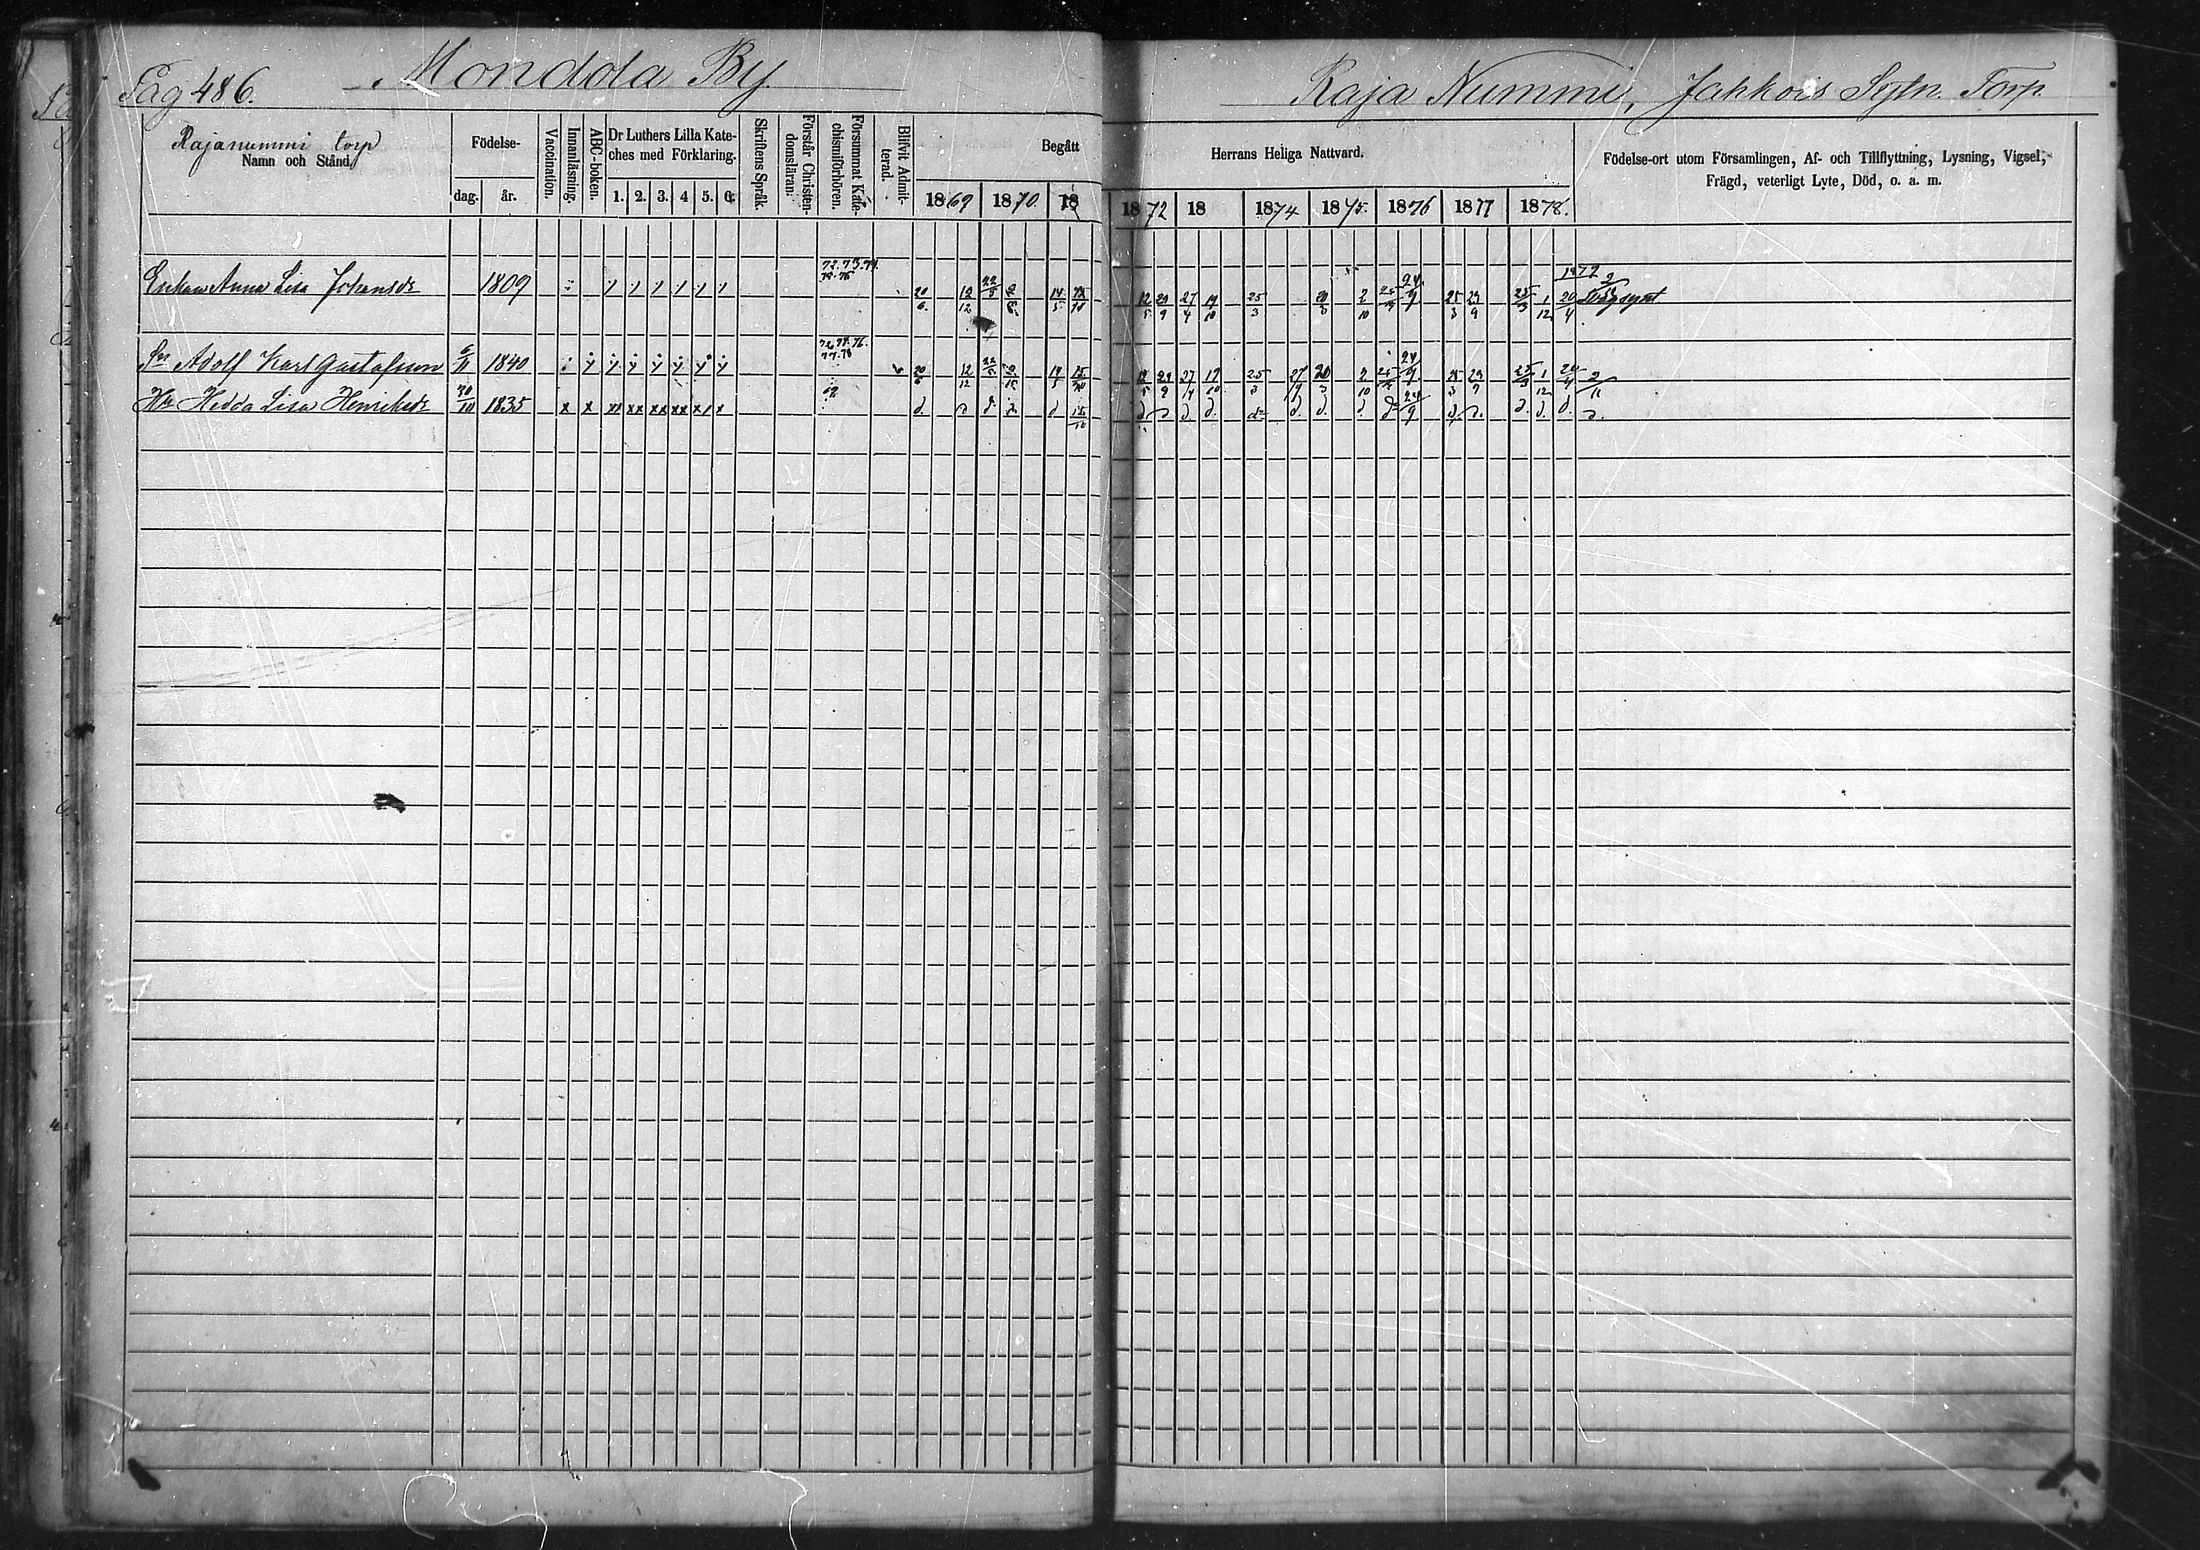 Pag 486. Mondola By. Raja Nummi, Jakkois Sytn. Torp.
Rajanummi torp
Namn och Stånd.
Födelse-
dag. år.
Vaccination.
Innanläsning.
ABC-boken.
Dr Luthers Lilla Kate-
ches med Förklaring.
1. 2. 3. 4 5. 6.
Skriftens Språk.
Förstår Christen-
domsläran.
Försummat Kate-
chismiförhören.
Blifvit Admit-
terad.
Begått
Herrans Heliga Nattvard.
1869 1870. 18
1872 18 1874 1875. 1876 1877 1878.
Födelse-ort utom Församlingen, Af- och Tillflyttning, Lysning, Vigsel,
Frägd, veterligt Lyte, Död, o. a. m.
72. 73. 74.
1872
Enkan Anna Lisa Johansdr 1809 20/6 12/12 22/5 14/5 12/5 29/9 27/4 19/10 25/3 20/3 2/10 24/9 25/3 23/9 25/3 1/12 20/4 Svagsynt
Sn Adolf Karl Gustafsson 6/11 1840 20/6 12/12 22/5 14/5 15/10 12/5 29/9 27/4 19/10 25/3 27/9 20/3 2/10 24/9 25/3 23/9 25/3 1/12 20/4 2/11
69
Hu Hedda Lisa Henriksdr 30/10 1835 x x xx xx xx xx x d. d. d. 15/10 d. d. d. d. d. d. 24/9 d. d. d. d.